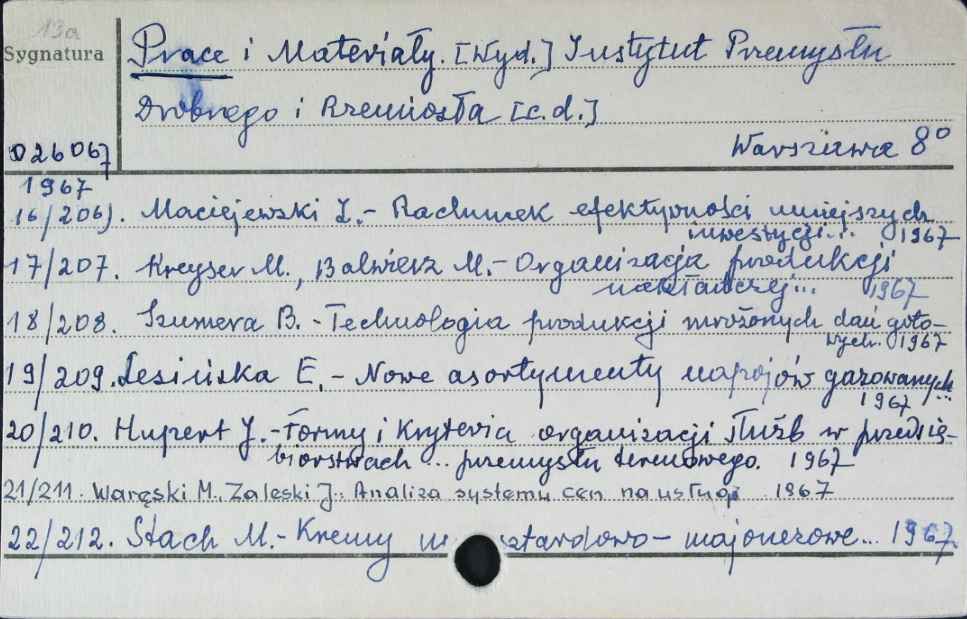 13a
Sygnatura
Prace i Materiały. [Wyd.] Instytut Przemysłu
Drobnego i Rzemiosła [c.d.]
026067
Warszawa 8°
1967
16/206). Maciejewski Z.- Rachunek efektywności mniejszych
inwestycji... 1967
17/207. Kreyser M., Balwierz M.- Organizacja produkcji
nakładczej... 1967
18/208. Szumera B. - Technologia produkcji mrożonych dań goto-
wych. 1967
19/209. Lesińska E. - Nowe asortymenty napojów gazowanych...
1967
20/210. Hupert J.- Formy i kryteria organizacji służb w przedsię-
biorstwach ... przemysłu terenowego. 1967
21/211. Waręski M. Zaleski J.. Analiza systemu cen na usługi 1967
22/212. Stach M.- Kremy mu sztardowo - majonezowe... 1967